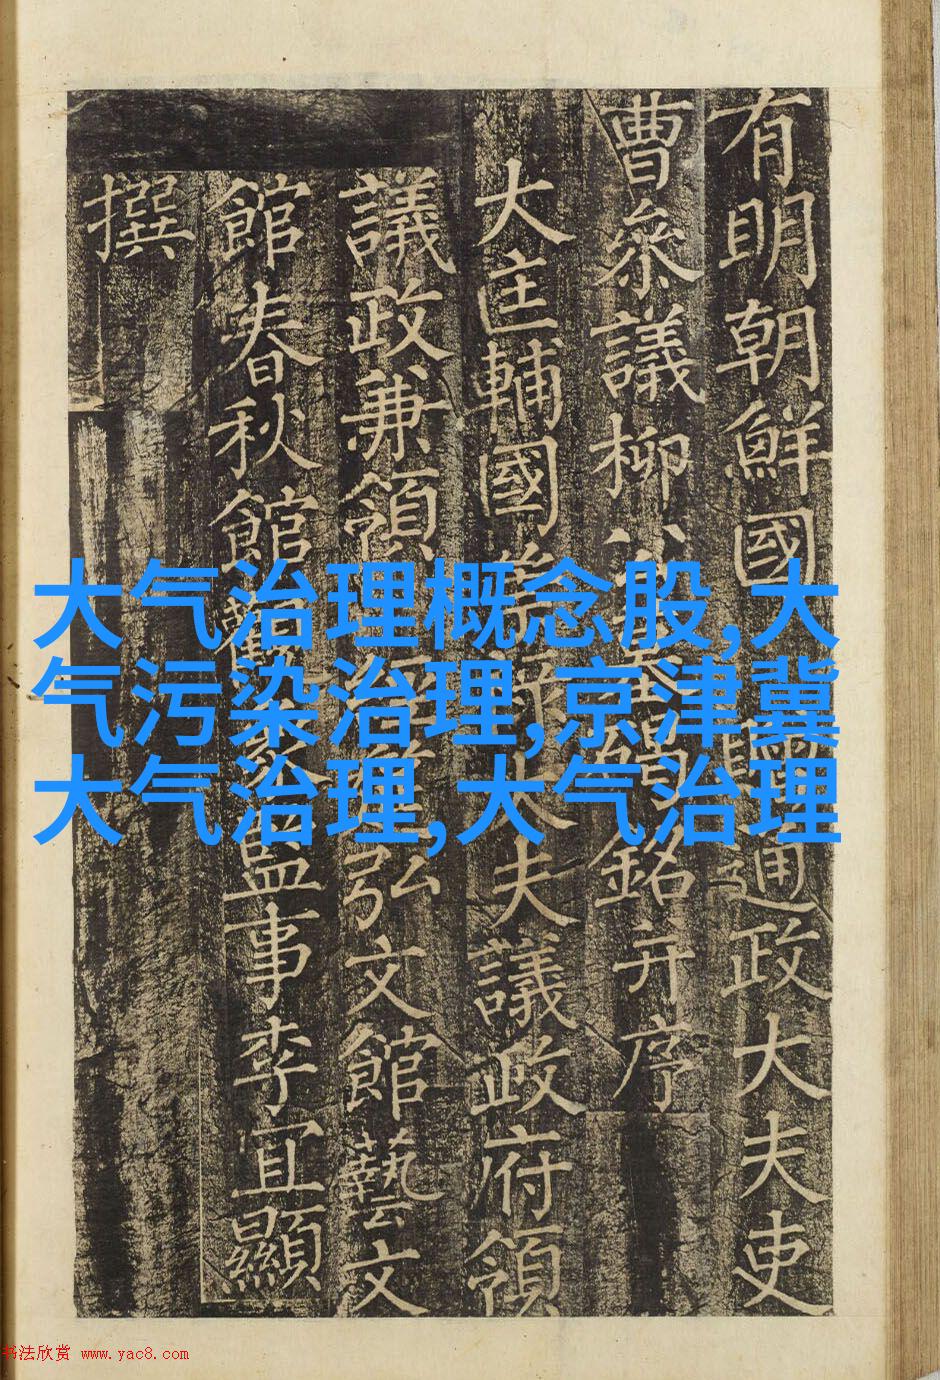 有明朝鮮國通政大夫吏
曹參議柳公墓碣銘并序
大匡輔國崇祿大夫議政府領
議政兼領經筵弘文館藝文
館春秋館觀象監事李宜顯
撰
大气治理概念股,大
气污染治理,京津冀
大气治理,大气治理
书法欣赏 www.yac8.com